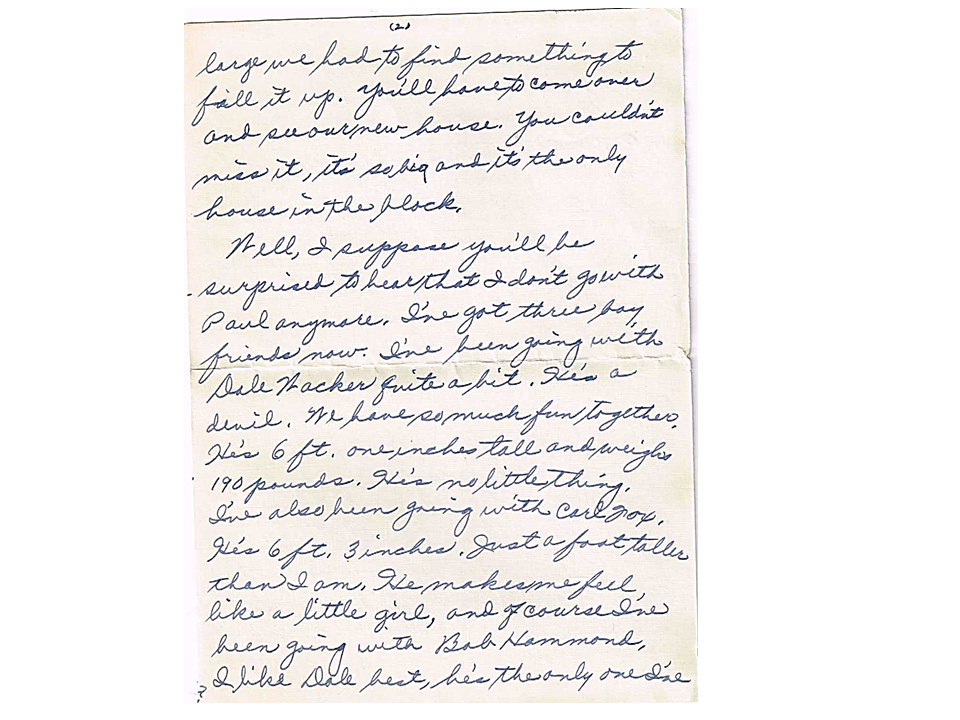 (2)
large we had to find something to
fill it up. You'll have to come over
and see our new house. You couldn't
miss it, it's so big and it's the only
house in the block.
Well, I suppose you'll be
surprised to hear that I don't go with
Paul anymore. I've got three boy
friends now. I've been going with
Dale Wacker quite a bit. He's a
devil. We have so much fun together.
He's 6 ft. one inches tall and weighs
190 pounds. He's no little thing.
I've also been going with Carl Fox.
He's 6 ft. 3 inches. Just a foot taller
than I am. He makes me feel
like a little girl, and of course I've
been going with Bob Hammond.
I like Dale best, he's the only one I've